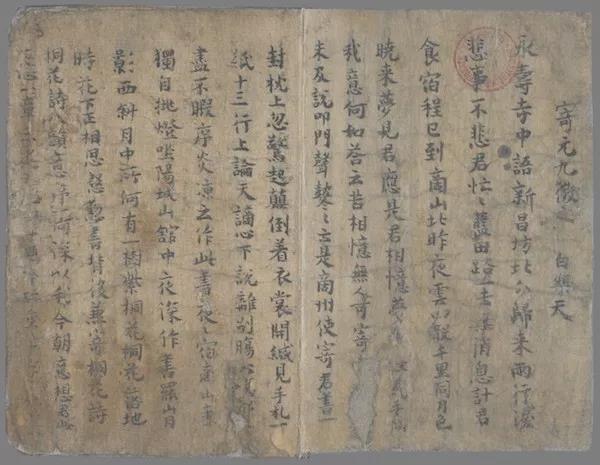 寄元九微之 白樂天
永壽寺中語新昌坊北分歸来兩行淚
悲事不悲君忙〻藍田路去無消息計君
食宿程已到商山北昨夜雲四散千里同月色
曉来夢見君應是君相憶夢手
我意何如荅云苦相憶無人可寄
未及説叩門聲鼕〻云是商州使寄君書一
封枕上忽驚起顛倒着衣裳開緘見手札一
紙十三行上論天謫心下説離别腸心腸都
盡不暇序炎凉云作此書夜〻宿商山東
獨自挑燈坐陽城山舘中夜深作書羅山月
影西斜月中所何有一樹紫桐花桐花落地
時花下正相思慇懃書背後兼寄桐花詩
桐花詩八韻意深以我今朝意想君此